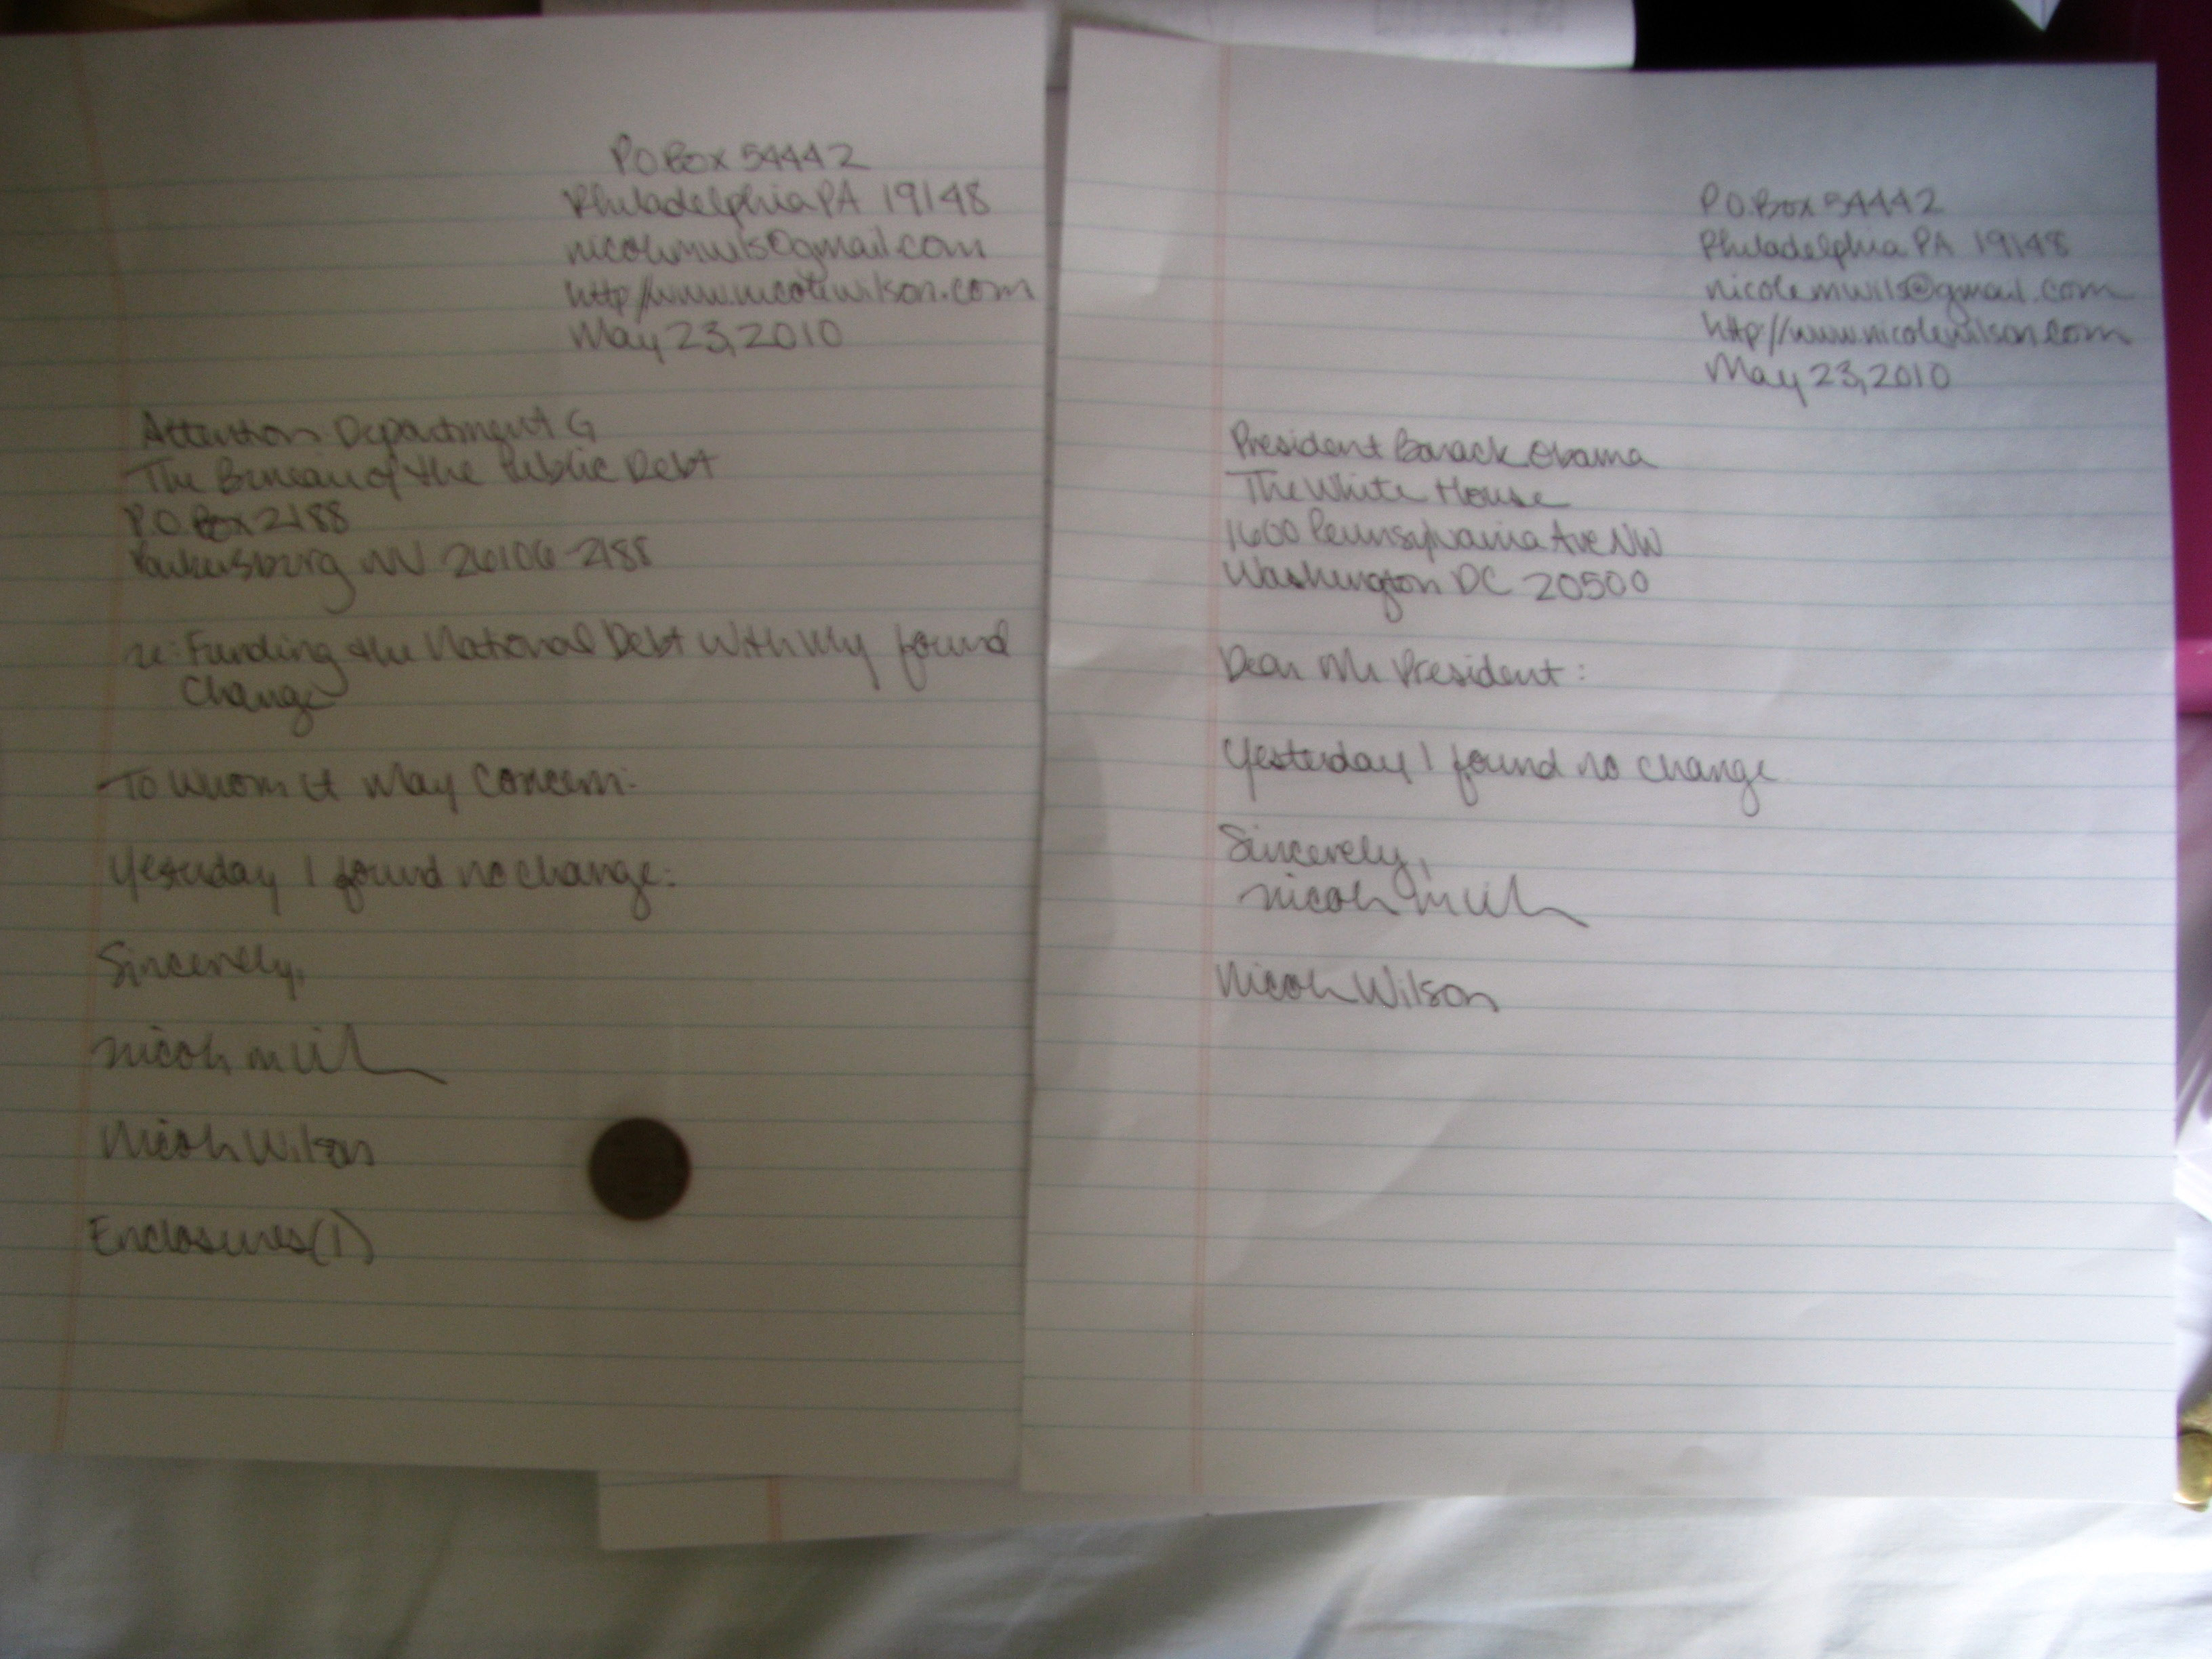 P.O. Box 54442
Philadelphia PA 19148
nicolemwils@gmail.com
http://www.nicolewilson.com
May 23, 2010
Attention Department G
The Bureau of the Public Debt
P.O. Box 2188
Parkersburg WV 26106-2188
re: Funding the National Debt With My found
Change
To Whom It May Concern:
Yesterday I found no change.
Sincerely,
Nicole Wilson
Enclosures (1)
P.O. Box 54442
Philadelphia PA 19148
nicolemwils@gmail.com
http://www.nicolewilson.com
May 23, 2010
President Barack Obama
The White House
1600 Pennsylvania Ave NW
Washington DC 20500
Dear Mr President:
Yesterday I found no change
Sincerely,
Nicole Wilson